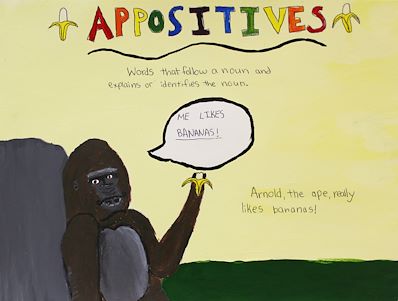 APPOSITIVES
Words that follow a noun and
explains or identifies the noun.
ME LIKES
BANANAS!
Arnold, the ape, really
likes bananas!